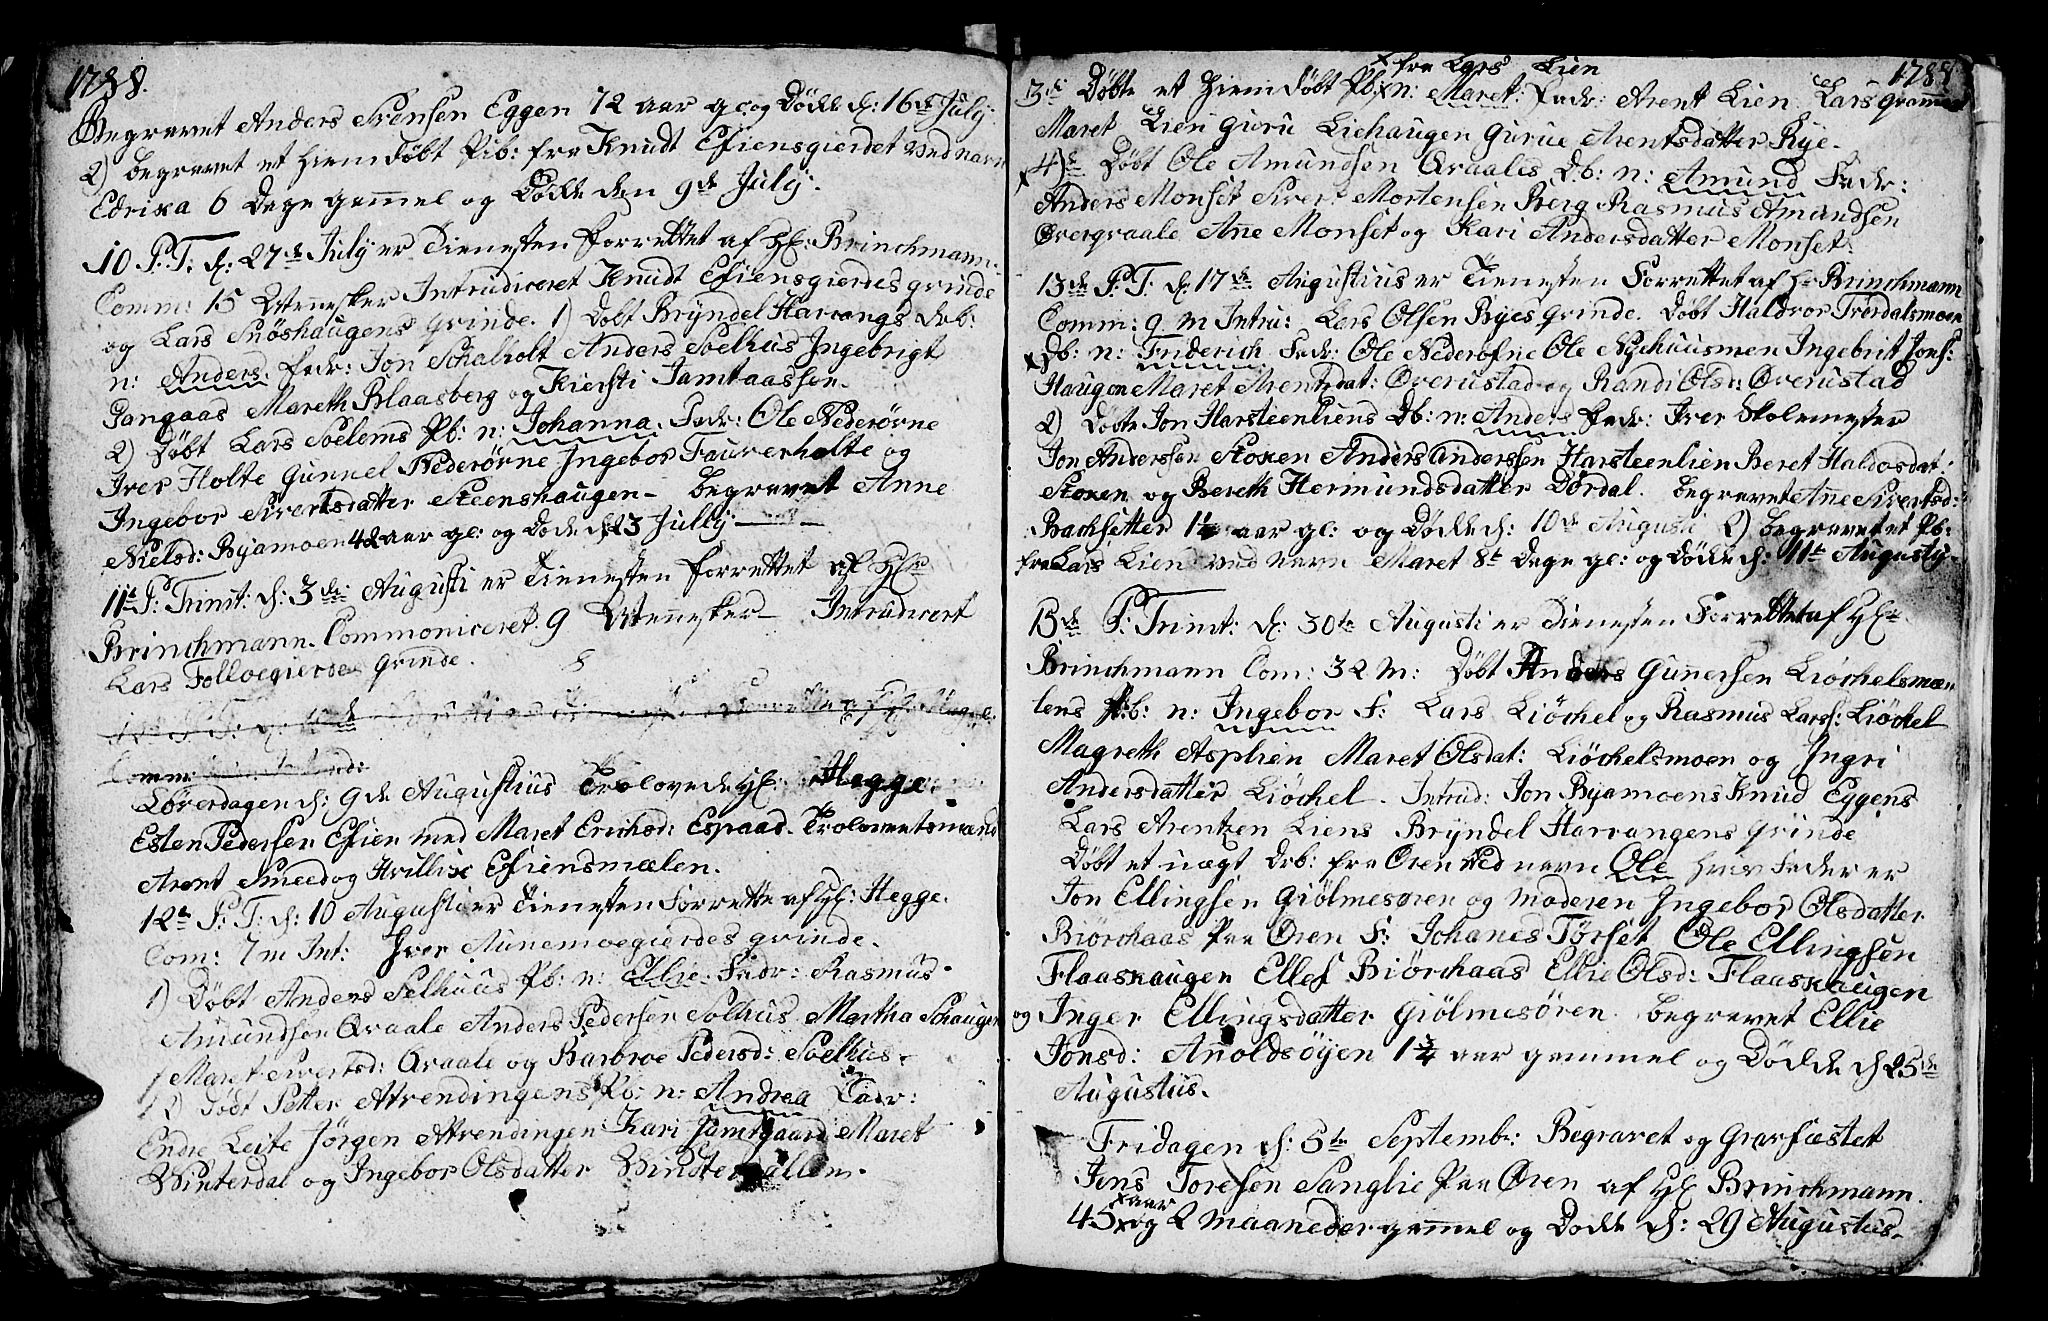 1788.
Begravet Anders Svensen Eggen 72 aar gl og Døde d: 16de July.
2) begravet et hiemdøbt Pib: fra Knudt Esiensgierdet ved navn
Edrixa 6 Dage gammel og Døde den 9de July.
10 P. T. d: 27de July er Tienesten forrettet af Hr: Brinchmann.
Comm: 15 Mennesker Introduceret Knudt Esiensgierdes grinde
og Lars Snøshaugens grinde. 1) Døbt Bryndel Harrangs drb:
n: Anders. Fadr: Jon Schalholt Anders Soelhus Ingebrigt
Gangaas Mareth Blaasberg og Kiersti Jamtaassen.
2) Døbt Lars Soelems Pb: n: Johanna. Fadr: Ole Nederørne
Iver Holte Gunnel Nederørne Ingebor Faurerholte og
Ingebor Sivertsdatter Steenshaugen - begravet Anne
Nielsd: Byamoen 42 aar gl: og Døde d: 23 July.
11te P: Trinit: d: 3de Augusti er Tienesten forrettet af Hr
Brinchmann. Commoniceret 9 Mennesker - Introducert
Lars Folloegierdes grinde.
Comm:
Løverdagen d: 9de Augustius Trolovede Hr: Hegge.
Esten Pedersen Esien med Maret Erichsd: Espaas. Trolovetsmænd
Arent Smeed og Hvillix Esiensmælen.
12te P. T: d: 10 Augusti er Tienesten Forrette af Hr: Hegge.
Com: 7 m Int: Iver Aunemoegierdes grinde.
1) Døbt Anders Selhuus Pb: n: Ellie. Fadr: Rasmus
Amundsen Qraale Anders Pedersen Solhus Martha Schaugen
Maret Sivertsd: Qraale og Barbroe Pedersd: Soelhus.
2) Døbt Petter Atrendingens Pb: n: Andrea Fadr:
Endre Leite Jørgen Atrendingen Kari Jamtgaard Maret
Winterdal og Ingebor Olsdatter Windterdallem.
1788
x fra Lars Lien
3de Døbte et hiemdøbt Pb: x n: Maret. Fadr: Arent Lien Lars Gramm
Maret Lien Guru Liehaugen Gurue Arentsdatter Rye.
4)de Døbt Ole Amundsen Qraales Db: n: Amund Fadr:
Anders Monset Siver Mortensen Berg Rasmus Amundsen
Øvergraale Ane Monset og Kari Andersdatter Monset.
13de P. T. d: 17de Augustius er Tienesten Forrettet af Hr Brinchmann
Comm: 9 m Intru: Lars Olsen Ryes grinde. Døbt Haldvor Trørdalsmoen
Db: n: Friderich Fadr: Ole Nederøfne Ole Nyehuusmen Ingebrit Jons:
Haugen Maret Arentsdat: Øverustad og Randi Olsd: Øverustad
2) Døbte Jon Harsteenliens Db: n: Anders Fadr: Iver Skolemester
Jon Anderssen Stoxen Anders Anderssen Harsteenlien Beret Haldosdat:
Stoxen og Bereth Hermundsdatter Dørdal. begravet Ane Sivertsd:
Bachsetter 1½ aar gl: og Døde d: 10de Augusti 2) begravet et Pb:
fra Lars Lien ved navn Maret 8te Dage gl: og Døde d: 11te Augusty.
15de P: Trinit: d: 30te Augusti er Tienesten Forrettet af Hr
Brinchmann Com: 32 M: Døbt Anders Gunersen Liøchelsmæ-
lens Pb: n: Ingebor F: Lars Liøchel og Rasmus Larss: Liøchel
Magreth Asplien Maret Olsdat: Liøchelsmoen og Ingri
Andersdatter Liøchel. Intrud: Jon Byamoens Knud Eggens
Lars Arentzen Liens Bryndel Harrangens grinde
Døbt et uægt Drb: fra Øren ved navn Ole hvis Fader er
Jon Ellingsen Giølmesøren og moderen Ingebor Olsdatter
Biørchaas Paa Øren F: Johanes Tørset Ole Ellingsen
Flaashaugen Ellef Biørchaas Ellie Olsd: Flaashaugen
og Inger Ellingsdatter Giølmesøren. begravet Ellie
Jonsd: Anoldsøyen 1¾ aar gammel og Døde d 25de
Augustus.
Fridagen d: 5te Septembr: Begravet og Gravfæstet
Jens Toresen Sanglie Paa Øren af Hr Brinchmann.
x aar
45 x og 2 maaneder gammel og Døde d: 29 Augustus.